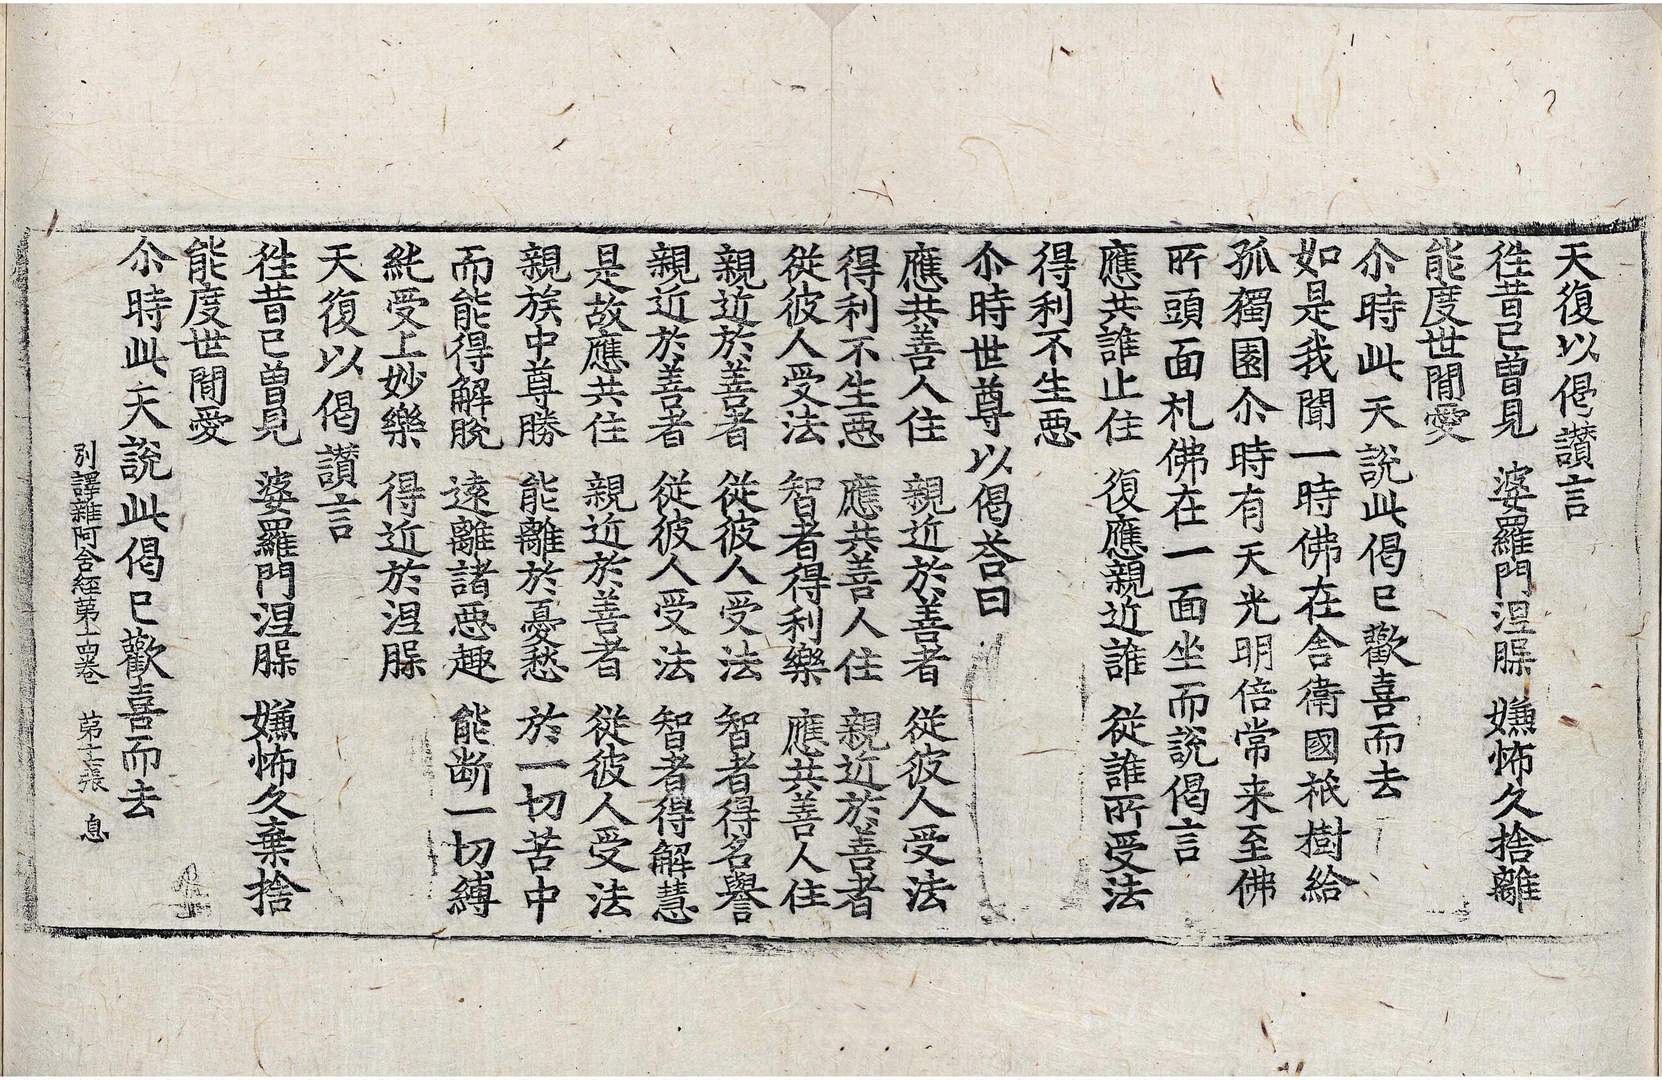 天復以偈讃言
徃昔已曾見　婆羅門涅槃　嫌怖久捨離
能度世間愛
尒時此天說此偈已歡喜而去
如是我聞一時佛在舍衛國祇樹給
孤獨園尒時有天光明倍常来至佛
所頭面礼佛在一面坐而說偈言
應共誰止住　復應親近誰　從誰所受法
得利不生惡
尒時世尊以偈荅曰
應共善人住　親近於善者　從彼人受法
得利不生惡　應共善人住　親近於善者
從彼人受法　智者得利樂　應共善人住
親近於善者　從彼人受法　智者得名譽
親近於善者　從彼人受法　智者得解慧
是故應共住　親近於善者　從彼人受法
親族中尊勝　能離於憂愁　於一切苦中
而能得解脫　遠離諸惡趣　能断一切縛
純受上妙樂　得近於涅槃
天復以偈讃言
徃昔已曾見　婆羅門涅槃　嫌怖久棄捨
能度世間愛
尒時此天說此偈已歡喜而去
別譯雜阿含經第十四卷　第十七張　息